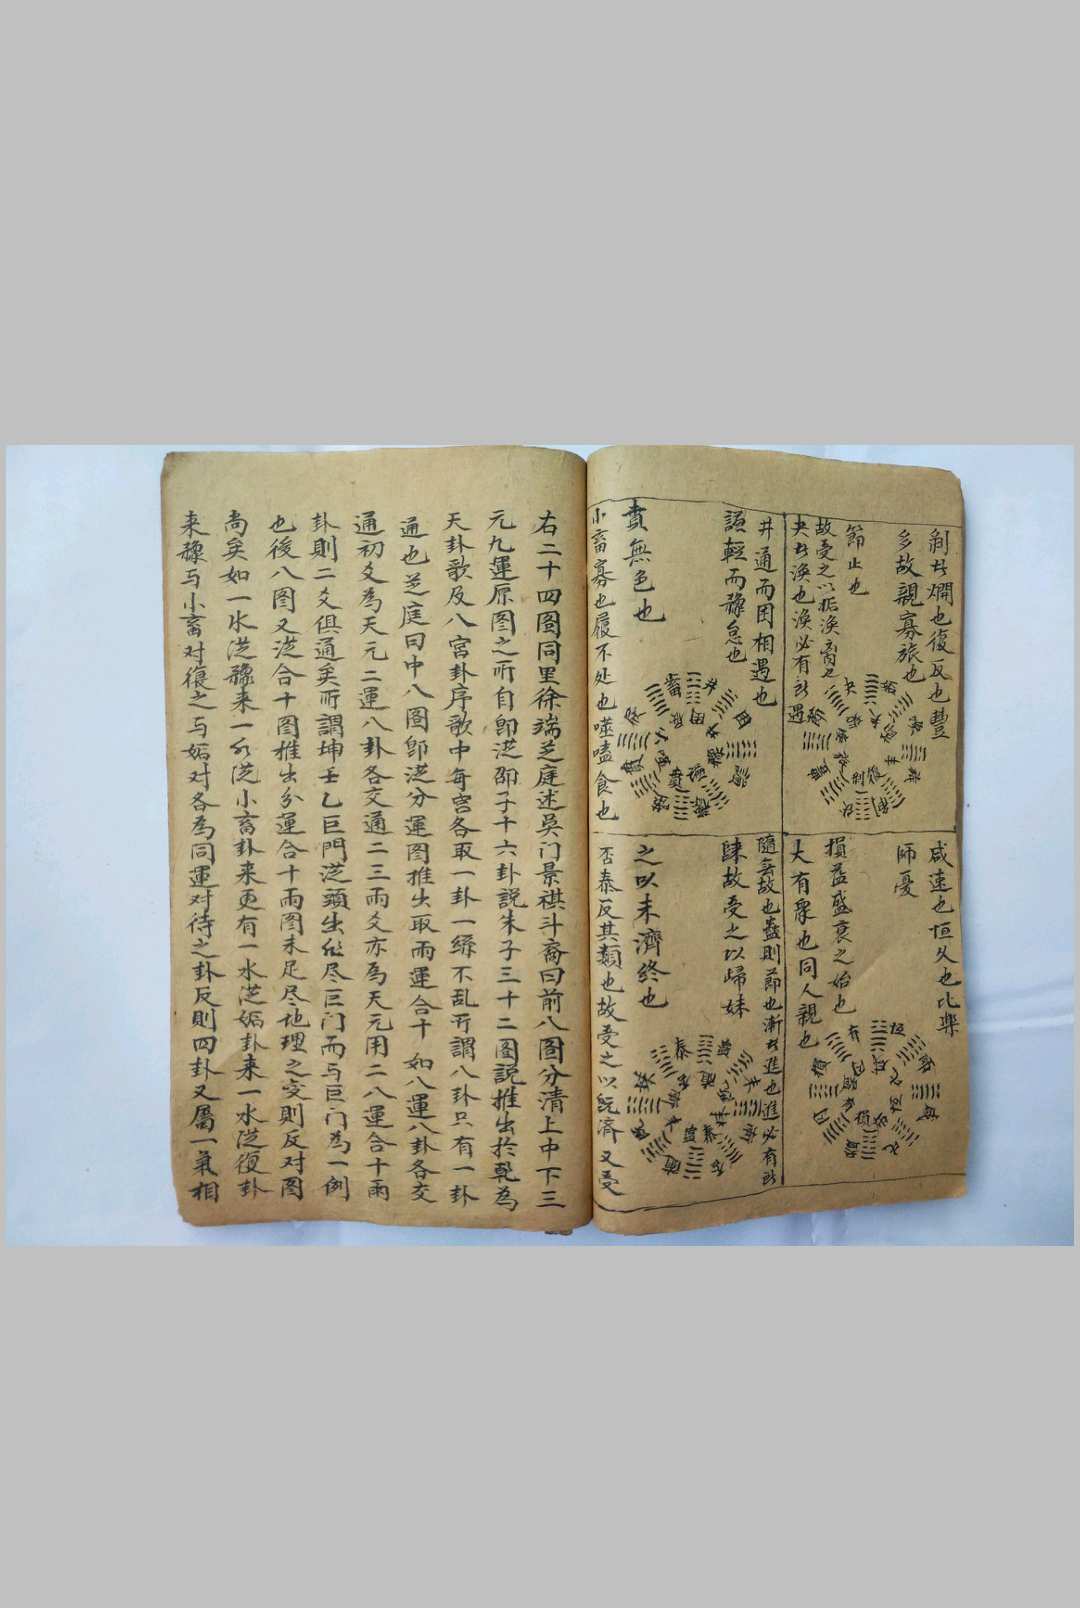 剝者爛也復反也豐
多故親寡旅也
節止也
故受之以
夬者渙也渙必有所遇
咸速也恒久也比樂
師憂
損益盛衰之始也
大有衆也同人親也
井通而困相遇也
謙輕而豫怠也
賁無色也
小畜寡也履不处也噬嗑食也
隨無故也蠱則節也漸者進也進必有所
歸故受之以歸妹
之以未濟終也
否泰反其類也故受之以既濟又受
右二十四圖同里徐端芝庭述吳门景祺斗裔曰前八圖分清上中下三
元九運原图之所自即從邵子十六卦説朱子三十二圖説推出於乾為
天卦歌及八宮卦序歌中每宮各取一卦一絲不乱所謂八卦只有一卦
通也芝庭曰中八圖即從分運图推出取兩運合十如八運八卦各交
通初爻為天元二運八卦各交通二三兩爻亦為天元用二八運合十兩
卦則二爻俱通矣所謂坤壬乙巨門從頭出非尽巨门而与巨门為一例
也後八图又從合十图推出分運合十兩图未足尽地理之变則反对图
尚矣如一水從豫来一水從小畜卦来更有一水從姤卦来一水從復卦
来豫与小畜对復之与姤对各為同運对待之卦反則四卦又屬一氣相